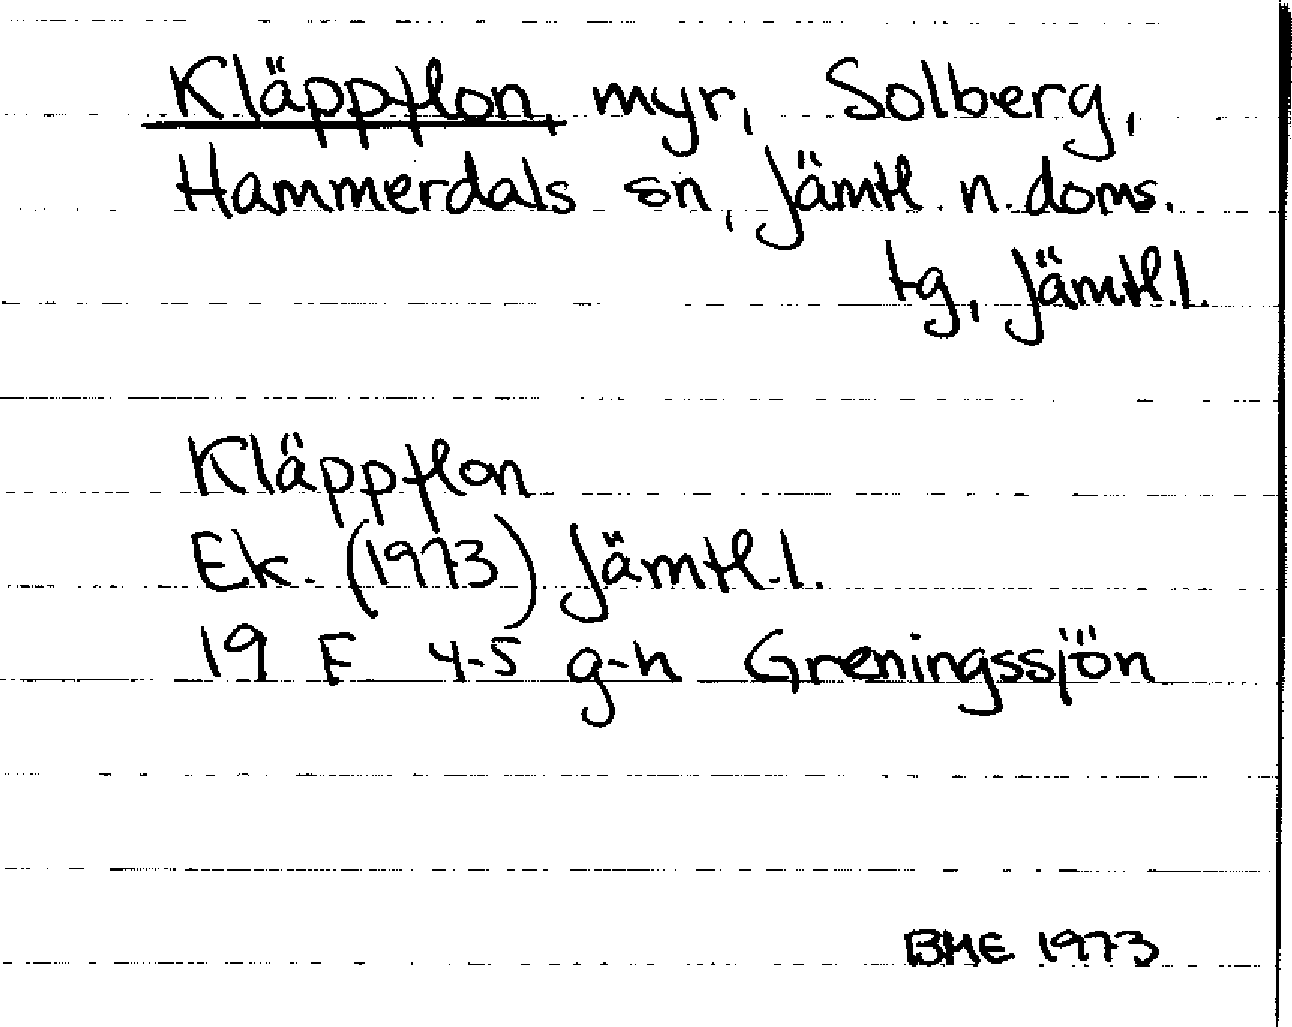 Kläppflon, myr, Solberg,
Hammerdals sn, Jämtl. n. doms.
tg, Jämtl.l.
Kläppflon
Ek. (1973) Jämtl.l.
19 F 4-5 g-h Greningssjön
BME 1973